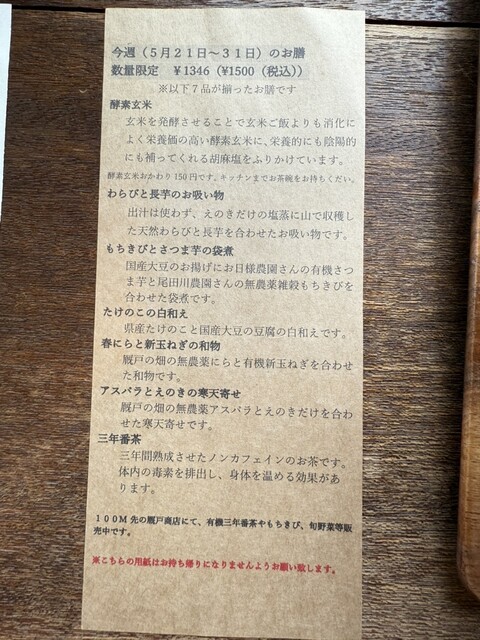 今週（５月２１日～３１日）のお膳
数量限定　￥1346（¥1500（税込））
※以下７品が揃ったお膳です
酵素玄米
玄米を発酵させることで玄米ご飯よりも消化に
よく栄養価の高い酵素玄米に、栄養的にも陰陽的
にも補ってくれる胡麻塩をふりかけています。
酵素玄米おかわり 150 円です。キッチンまでお茶碗をお持ちください。
わらびと長芋のお吸い物
出汁は使わず、えのきだけの塩蒸に山で収穫し
た天然わらびと長芋を合わせたお吸い物です。
もちきびとさつま芋の袋煮
国産大豆のお揚げにお日様農園さんの有機さつ
ま芋と尾田川農園さんの無農薬雑穀もちきびを
合わせた袋煮です。
たけのこの白和え
県産たけのこと国産大豆の豆腐の白和えです。
春にらと新玉ねぎの和物
厩戸の畑の無農薬にらと有機新玉ねぎを合わせ
た和物です。
アスパラとえのきの寒天寄せ
厩戸の畑の無農薬アスパラとえのきだけを合わ
せた寒天寄せです。
三年番茶
三年間熟成させたノンカフェインのお茶です。
体内の毒素を排出し、身体を温める効果があ
ります。
１００M 先の厩戸商店にて、有機三年番茶やもちきび、旬野菜等販
売中です。
※こちらの用紙はお持ち帰りになりませんようお願い致します。